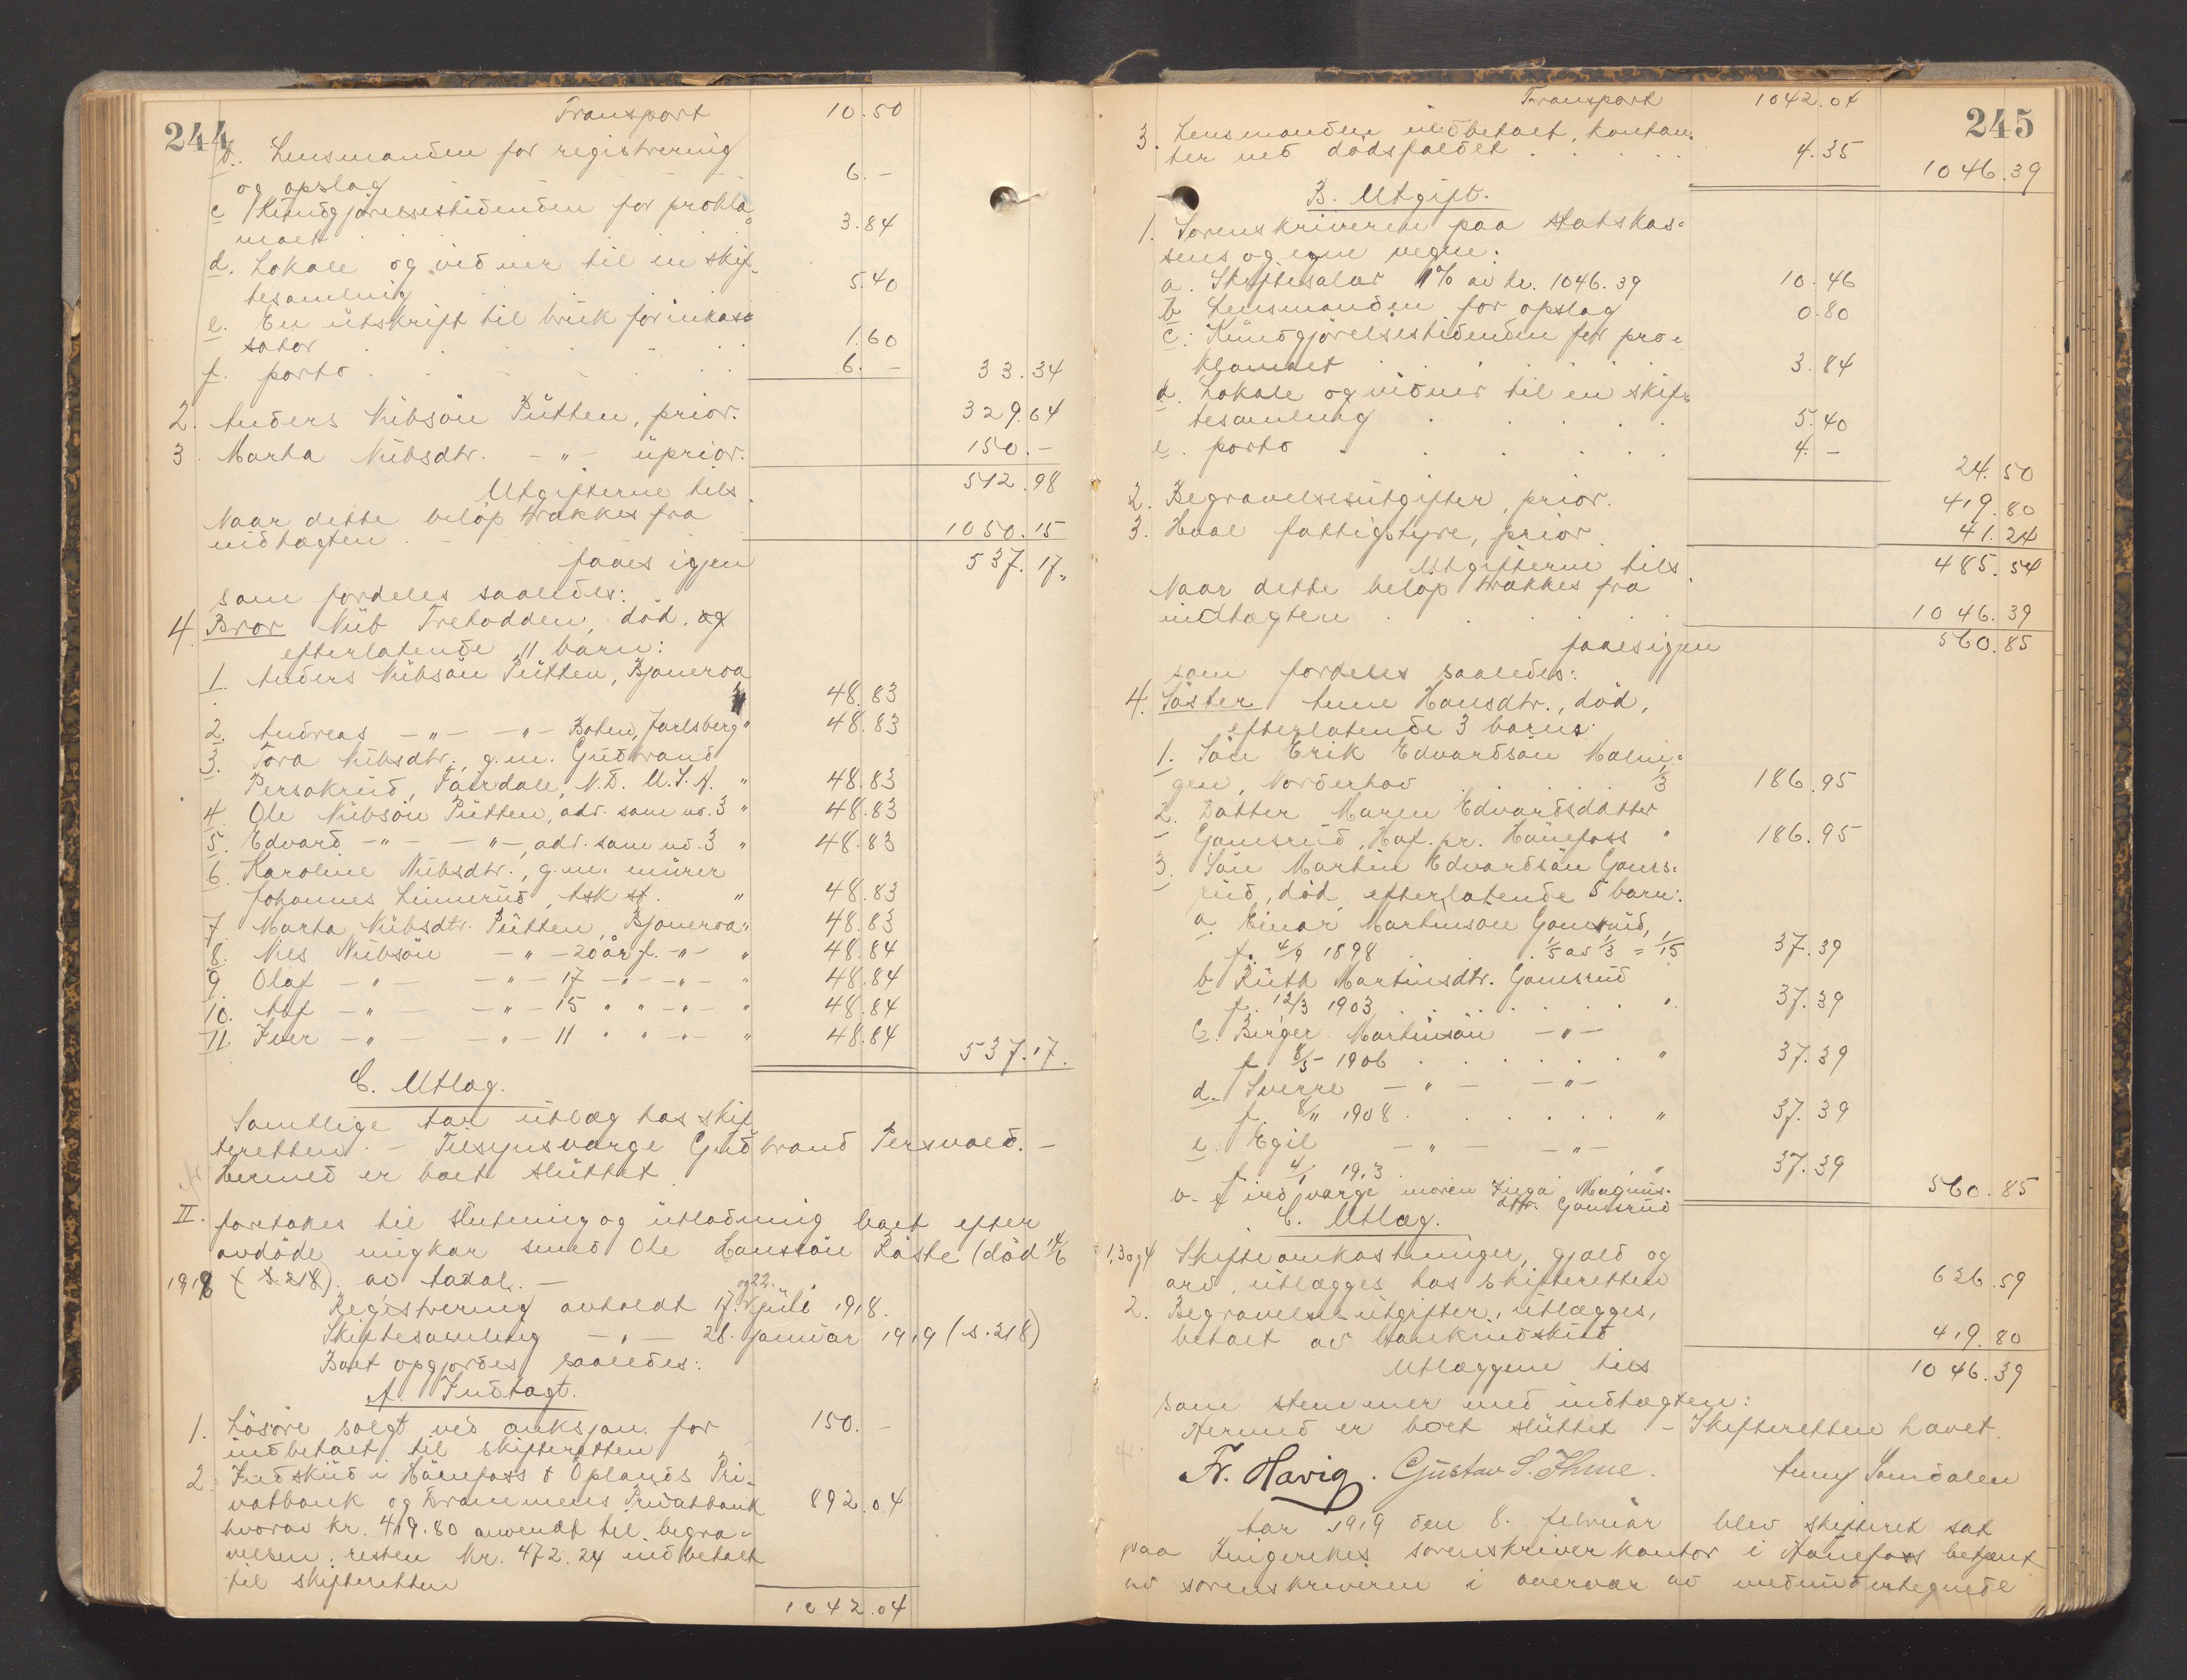 244
Transport 10.50
b. Lensmanden for registrering
og opslag 6.-
c Kundgjørelsestidenden for prokla-
maet 3.84
d. Lokale og vidner til en skif-
tesamling 5.40
e. En utskrift til bruk for inkas-
sator 1.60
f. porto 6.- 33.34
2. Anders Nubsøn Pütten, prior. 329.64
3. Marta Nubsdtr. -"- uprior. 150.-
Utgifterne tils. 512.98
Naar dette beløp trækkes fra
indtægten 1050.15
faaes igjen 537.17
som fordeles saaledes:
4. Bror Nub Trehodden, død, og
efterlatende 11 barn:
1. Anders Nubsøn Pütten, Bjoneroa
48.83
2. Andreas -"- -"- Boten, Jarlsberg " 48.83
3. Tora Nubsdtr., g.m. Gudbrand
Persokrud, Fairdale, N.D. U.S.A. " 48.83
4. Ole Nubsøn Pütten, adr. som no. 3 " 48.83
5. Edvard -"- -"-, adr. som no. 3 " 48.83
6. Karoline Nubsdtr., g.m. murer
Johannes Linnerud, Ask st. " 48.83
7. Marta Nubsdtr. Pütten, Bjoneroa " 48.83
8. Nils Nubsøn -"- 20 år f. -"- " 48.84
9. Olaf -"- -"- 17 -"- -"- " 48.84
10. Alf -"- -"- 15 " " -"- " 48.84
11. Iver -"- -"- 11 " " -"- " 48.84 537.17.
C. Utlæg.
Samtlige tar utlæg hos skif-
teretten. - Tilsynsværge Gudbrand Persvold. -
Hermed er boet sluttet.
II. foretokes til slutning og utlodning boet efter
avdøde ungkar smed Ole Hanssøn Røste (død 14/6
1918 (s. 218). av
Registrering avholdt 17. og 22. juli 1918.
Skiftesamling -"- 28. januar 1919 (s. 218)
Boet opgjordes saaledes:
A. Indtægt.
1. Løsøre solgt ved auksjon for 150.-
indbetalt til skifteretten
2. Indskud i Hønefoss & Oplands Pri-
vatbank og Drammens Privatbank 892.04
hvorav kr. 419.80 anvendt til begra-
velsen, resten kr. 472.24 indbetalt
til skifteretten
1042.04
245
Transport 1042.04
3. Lensmanden indbetalt, kontan-
ter ved dødsfaldet 4.35 1046.39
B. Utgift.
1. Sorenskriveren paa statskas-
sens og egne vegne:
a. Skiftesalær 1% av kr. 1046.39 10.46
b. Lensmanden for opslag 0.80
c. Kundgjørelsestidenden for pro-
klamaet 3.84
d. Lokale og vidner til en skif-
tesamling 5.40
e. porto 4.- 24.50
2. Begravelsesutgifter, prior. 419.80
3. Hole fattigstyre, prior 41.24
Utgifterne tils. 485.54
Naar dette beløp trækkes fra
indtægten 1046.39
faaes igjen 560.85
som fordeles saaledes:
4. Søster Anne Hansdtr., død,
efterlatende 3 barn:
1. Søn Erik Edvardsøn Malin-
gen, Norderhov 1/3 186.95
2. Datter Maren Edvardsdatter
Gomsrud, Haf. pr. Hønefoss " 186.95
3. Søn Martin Edvardsøn Goms-
rud, død, efterlatende 5 barn:
a. Einar Martinsøn Gomsrud,
f. 4/9 1898 1/5 av 1/3 = 1/15 37.39
b. Ruth Martinsdtr. Gomsrud
f. 12/3 1903 " 37.39
c. Birger Martinsøn -"-
f 8/5 1906 " 37.39
d. Sverre -"- -"-
f. 8/11 1908 " 37.39
e. Egil -"- -"-
f 4/1 1913 " 37.39
b-e ved værge moren Inga Magnus-
dtr. Gomsrud 560.85
C. Utlæg.
1, 3 og 4 Skifteomkostninger, gjæld og
arv, utlægges hos skifteretten 626.59
2. Begravelsesutgifter, utlægges,
betalt av bankindskud 419.80
Utlæggene tils 1046.39
som stemmer med indtægten:
Hermed er boet sluttet - Skifteretten hævet.
Fr. Havig. Gustav S. Ihme. Anny Samdalen
Aar 1919 den 8. februar blev skifteret sat
paa Ringerikes sorenskriverkontor i Hønefoss betjent
av sorenskriveren i overvær av medundertegnede